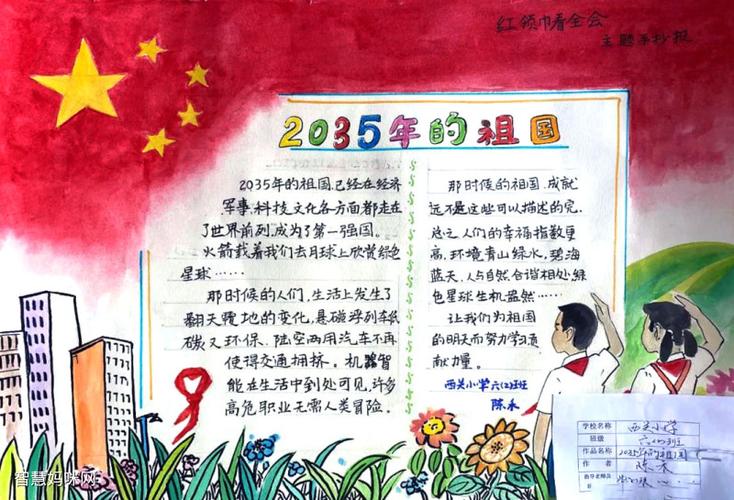 红领巾看全会
主题手抄报
2035年的祖国
2035年的祖国,已经在经济
军事,科技,文化各方面都走在
了世界前列,成为了第一强国。
火箭载着我们去月球上欣赏绿色
星球……
那时候的人们,生活上发生了
翻天覆地的变化,悬磁浮列车低
碳又环保,陆空两用汽车不再
使得交通拥挤。机器智
能在生活中到处可见,许多
高危职业无需人类冒险。
那时候的祖国,成就
远不是这些可以描述的完,
总之,人们的幸福指数更
高,环境青山绿水,碧海
蓝天,人与自然合谐相处,绿
色星球生机盎然……
让我们为祖国
的明天而努力学习,贡
献力量。
西关小学六(2)班
陈禾
学校名称 西关小学
班级 六(2)班
作品名称 2035年的祖国
作者 陈禾
指导老师
智慧妈咪网